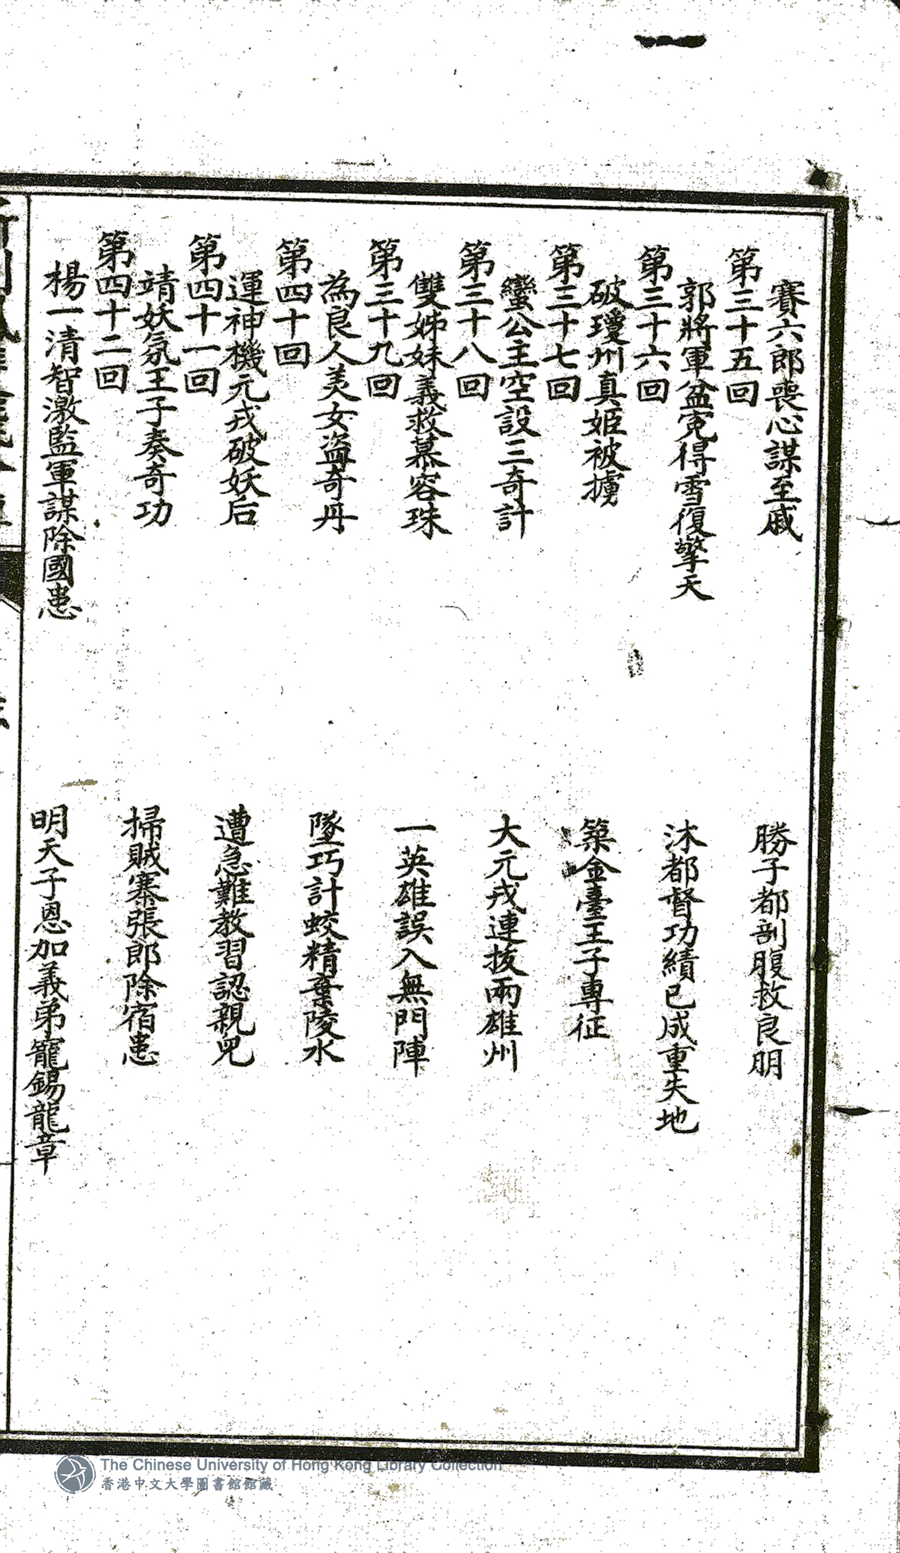 賽六郎喪心謀至戚 勝子都剖腹救良朋
第三十五回
郭將軍盆寃得雪復擎天 沐都督功績已成重失地
第三十六回
破瓊州真姬被擄 築金臺王子專征
第三十七回
蠻公主空設三奇計 大元戎連拔兩雄州
第三十八回
雙姊妹義救慕容珠 一英雄誤入無門陣
第三十九回
為良人美女盜奇丹 墜巧計蛟精棄陵水
第四十回
運神機元戎破妖后 遭急難教習認親兒
第四十一回
靖妖氛王子奏奇功 掃賊寨張郎除宿患
第四十二回
楊一清智激監軍謀除國患 明天子恩加義弟寵錫龍章
The Chinese University of Hong Kong Library Collection
香港中文大學圖書館館藏